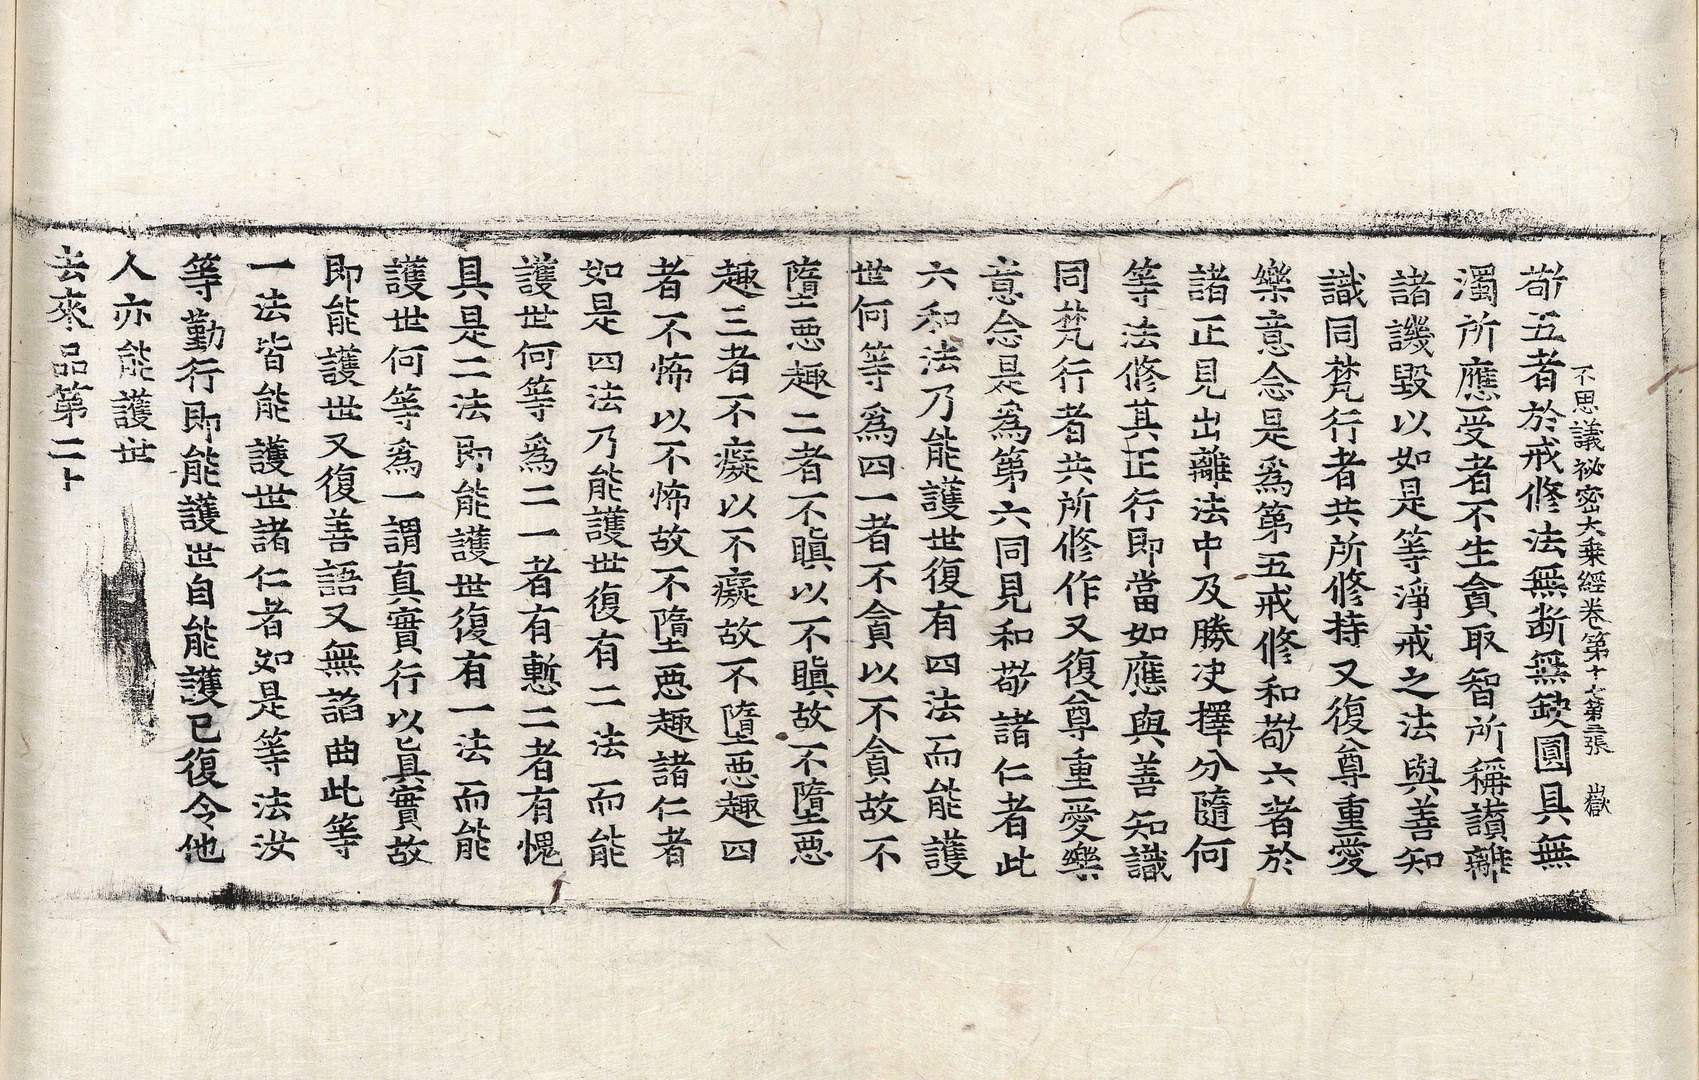 不思議祕密大乘經卷第十七 第三張 嶽
敬五者於戒修法無断無缺圓具無
濁所應受者不生貪取智所稱讃離
諸譏毀以如是等淨戒之法與善知
識同梵行者共所修持又復尊重愛
樂意念是爲第五戒修和敬六者於
諸正見出離法中及勝决擇分隨何
等法修其正行即當如應與善知識
同梵行者共所修作又復尊重愛樂
意念是爲第六同見和敬諸仁者此
六和法乃能護世復有四法而能護
世何等爲四一者不貪以不貪故不
墮惡趣二者不瞋以不瞋故不墮惡
趣三者不癡以不癡故不墮惡趣四
者不怖以不怖故不墮惡趣諸仁者
如是四法乃能護世復有二法而能
護世何等爲二一者有慙二者有愧
具是二法即能護世復有一法而能
護世何等爲一謂真實行以真實故
即能護世又復善語又無諂曲此等
一法皆能護世諸仁者如是等法汝
等勤行即能護世自能護已復令他
人亦能護世
去來品第二十